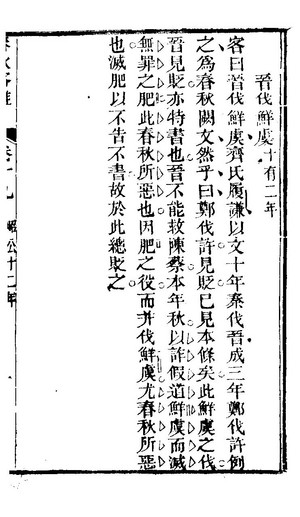 晉伐鮮虞十有二年
客曰晉伐鮮虞齊氏履謙以文十年秦伐晉成三年鄭伐許例
之爲春秋闕文然乎曰鄭伐許見貶已見本條矣此鮮虞之伐
晉見貶亦特書也晉不能救陳蔡本年秋以詐假道鮮虞而滅
無罪之肥此春秋所惡也因肥之役而并伐鮮虞尤春秋所惡
也滅肥以不告不書故於此總貶之
昭公十二年